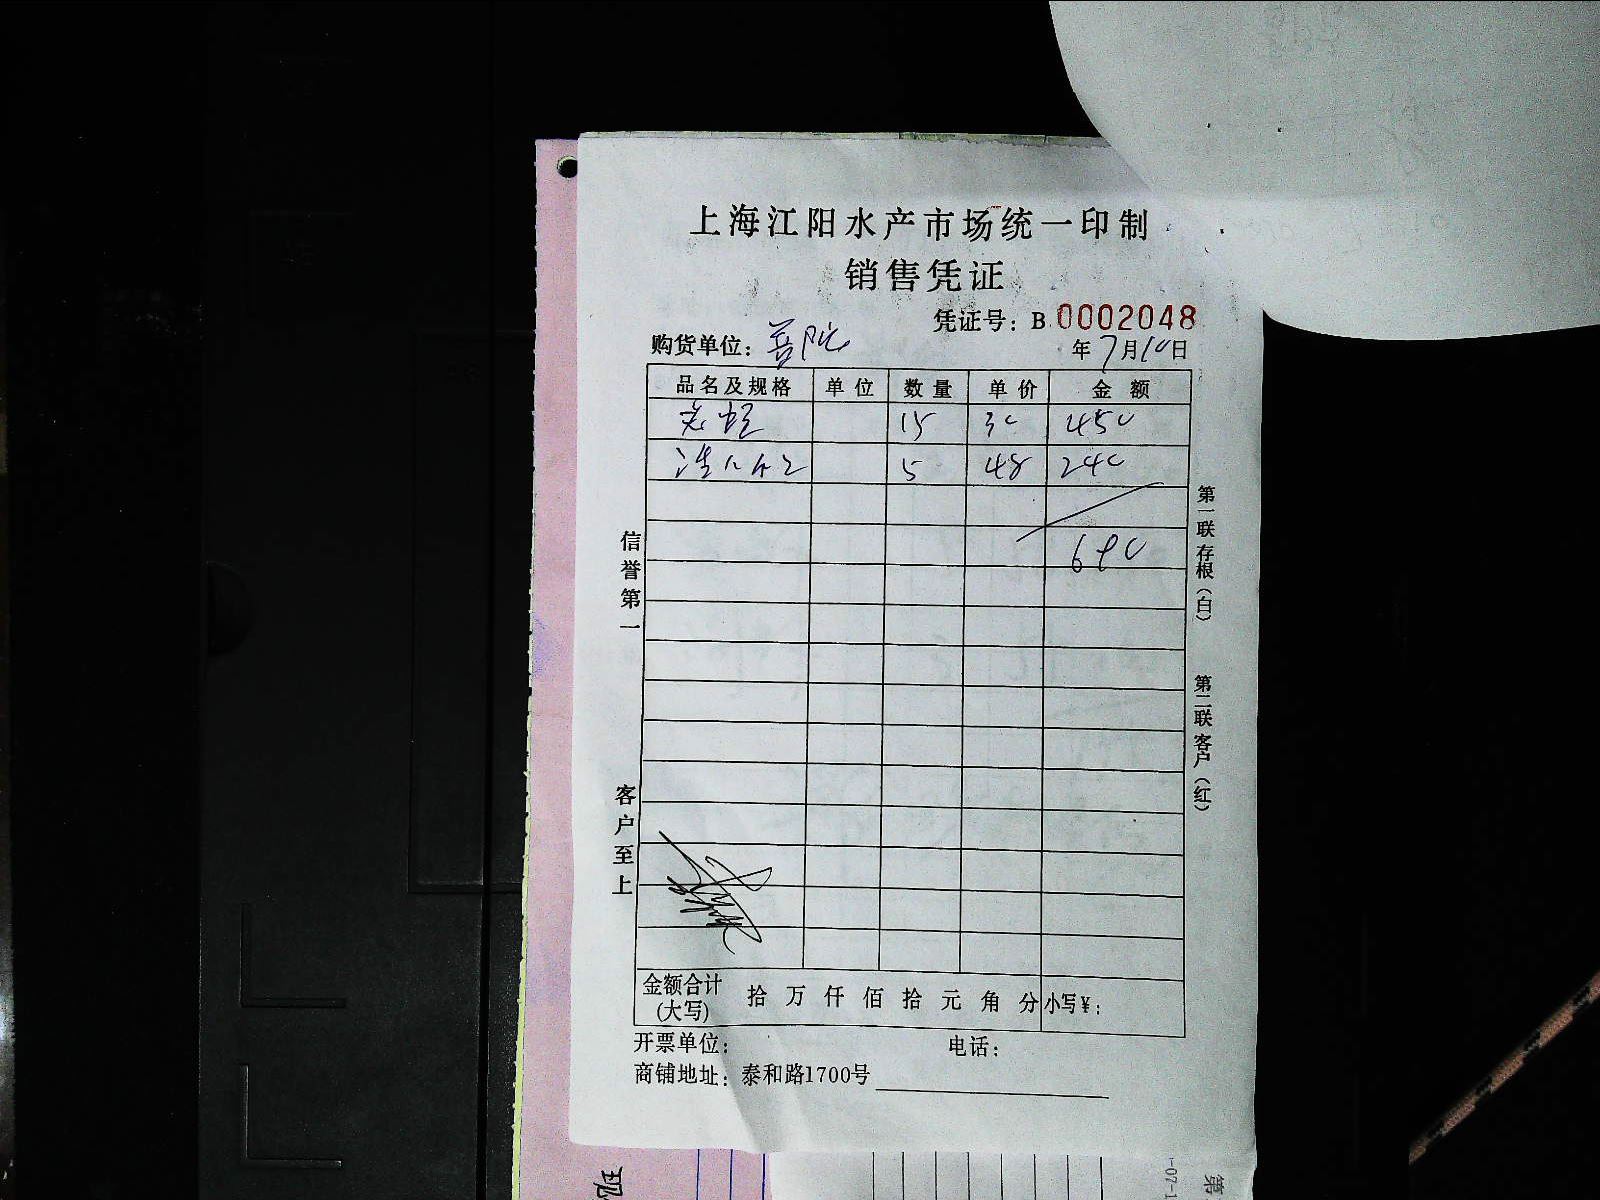 上海江阳水产市场统一印制
销售凭证
凭证号：B 0002048
购货单位：普陀
年7月10日
品名及规格 单位 数量 单价 金额
15 30 450
5 48 240
690
信誉第一
客户至上
第一联存根（白）
第二联客户（红）
金额合计(大写) 拾 万 仟 佰 拾 元 角 分 小写¥：
开票单位： 电话：
商铺地址：泰和路1700号